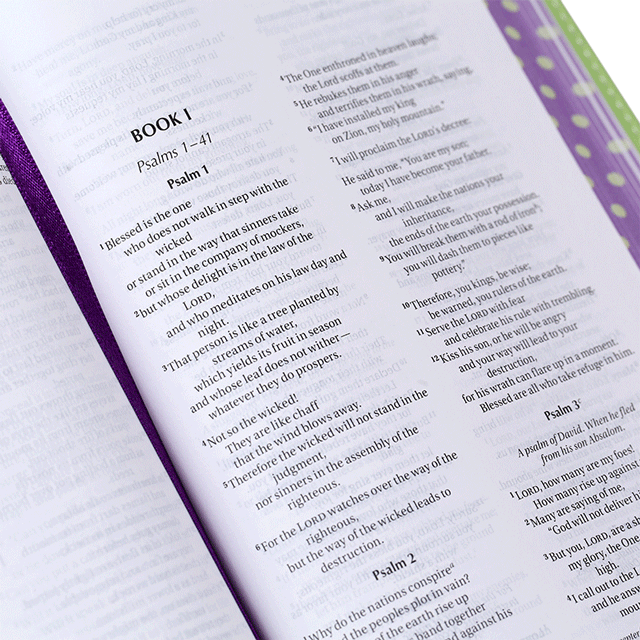 BOOK I
Psalms 1–41
Psalm 1
1Blessed is the one
who does not walk in step with the
wicked
or stand in the way that sinners take
or sit in the company of mockers,
2but whose delight is in the law of the
LORD,
and who meditates on his law day and
night.
3That person is like a tree planted by
streams of water,
which yields its fruit in season
and whose leaf does not wither—
whatever they do prospers.
4Not so the wicked!
They are like chaff
that the wind blows away.
5Therefore the wicked will not stand in the
judgment,
nor sinners in the assembly of the
righteous.
6For the LORD watches over the way of the
righteous,
but the way of the wicked leads to
destruction.
Psalm 2
1Why do the nations conspire
and the peoples plot in vain?
of the earth rise up
band together
against his
4The One enthroned in heaven laughs;
the Lord scoffs at them.
5He rebukes them in his anger
and terrifies them in his wrath, saying,
6"I have installed my king
on Zion, my holy mountain."
7I will proclaim the LORD's decree:
He said to me, "You are my son;
today I have become your father.
8Ask me,
and I will make the nations your
inheritance,
the ends of the earth your possession.
9You will break them with a rod of iron;
you will dash them to pieces like
pottery."
10Therefore, you kings, be wise;
be warned, you rulers of the earth.
11Serve the LORD with fear
and celebrate his rule with trembling.
12Kiss his son, or he will be angry
and your way will lead to your
destruction,
for his wrath can flare up in a moment.
Blessed are all who take refuge in him.
Psalm 3c
A psalm of David. When he fled
from his son Absalom.
1LORD, how many are my foes!
How many rise up against
2Many are saying of me,
"God will not deliver
3But you, LORD, are a
my glory, the One
high.
4I call out to the
and he ans